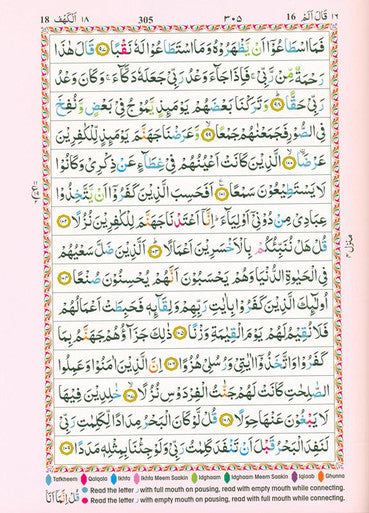 ١٦ قَالَ اَلَمْ 16 ٣٠٥ 305 ١٨ اَلْكَهْف 18
فَمَا اسْطَاعُوْٓا اَنْ يَّظْهَرُوْهُ وَمَا اسْتَطَاعُوْا لَهٗ نَقْبًا ﴿٩٧﴾ قَالَ هٰذَا
رَحْمَةٌ مِّنْ رَّبِّيْ ۚ فَاِذَا جَآءَ وَعْدُ رَبِّيْ جَعَلَهٗ دَكَّآءَ ۚ وَكَانَ وَعْدُ
رَبِّيْ حَقًّا ﴿٩٨﴾ وَتَرَكْنَا بَعْضَهُمْ يَوْمَئِذٍ يَّمُوْجُ فِيْ بَعْضٍ وَّنُفِخَ
فِى الصُّوْرِ فَجَمَعْنٰهُمْ جَمْعًا ﴿٩٩﴾ وَّعَرَضْنَا جَهَنَّمَ يَوْمَئِذٍ لِّلْكٰفِرِيْنَ
عَرْضَا ﴿١٠٠﴾ الَّذِيْنَ كَانَتْ اَعْيُنُهُمْ فِيْ غِطَآءٍ عَنْ ذِكْرِيْ وَكَانُوْا
لَا يَسْتَطِيْعُوْنَ سَمْعًا ﴿١٠١﴾ اَفَحَسِبَ الَّذِيْنَ كَفَرُوْٓا اَنْ يَّتَّخِذُوْا
عِبَادِيْ مِنْ دُوْنِيْٓ اَوْلِيَآءَ ؕ اِنَّآ اَعْتَدْنَا جَهَنَّمَ لِلْكٰفِرِيْنَ نُزُلًا ﴿١٠٢﴾
قُلْ هَلْ نُنَبِّئُكُمْ بِالْاَخْسَرِيْنَ اَعْمَالًا ﴿١٠٣﴾ اَلَّذِيْنَ ضَلَّ سَعْيُهُمْ
فِى الْحَيٰوةِ الدُّنْيَا وَهُمْ يَحْسَبُوْنَ اَنَّهُمْ يُحْسِنُوْنَ صُنْعًا ﴿١٠٤﴾
اُولٰٓئِكَ الَّذِيْنَ كَفَرُوْا بِاٰيٰتِ رَبِّهِمْ وَلِقَآئِهٖ فَحَبِطَتْ اَعْمَالُهُمْ
فَلَا نُقِيْمُ لَهُمْ يَوْمَ الْقِيٰمَةِ وَزْنًا ﴿١٠٥﴾ ذٰلِكَ جَزَآؤُهُمْ جَهَنَّمُ بِمَا
كَفَرُوْا وَاتَّخَذُوْٓا اٰيٰتِيْ وَرُسُلِيْ هُزُوًا ﴿١٠٦﴾ اِنَّ الَّذِيْنَ اٰمَنُوْا وَعَمِلُوا
الصّٰلِحٰتِ كَانَتْ لَهُمْ جَنّٰتُ الْفِرْدَوْسِ نُزُلًا ﴿١٠٧﴾ خٰلِدِيْنَ فِيْهَا
لَا يَبْغُوْنَ عَنْهَا حِوَلًا ﴿١٠٨﴾ قُلْ لَّوْ كَانَ الْبَحْرُ مِدَادًا لِّكَلِمٰتِ رَبِّيْ
لَنَفِدَ الْبَحْرُ قَبْلَ اَنْ تَنْفَدَ كَلِمٰتُ رَبِّيْ وَلَوْ جِئْنَا بِمِثْلِهٖ مَدَدًا ﴿١٠٩﴾
قُلْ اِنَّمَآ اَنَا
منزل ٤
Tafkheem Qalqala Ikhfa Ikhfa Meem Saakin Idghaam Idghaam Meem Saakin Iqlaab Ghunna
Read the letter ر with full mouth on pausing, read with empty mouth while connecting.
Read the letter ر with empty mouth on pausing, read with full mouth while connecting.